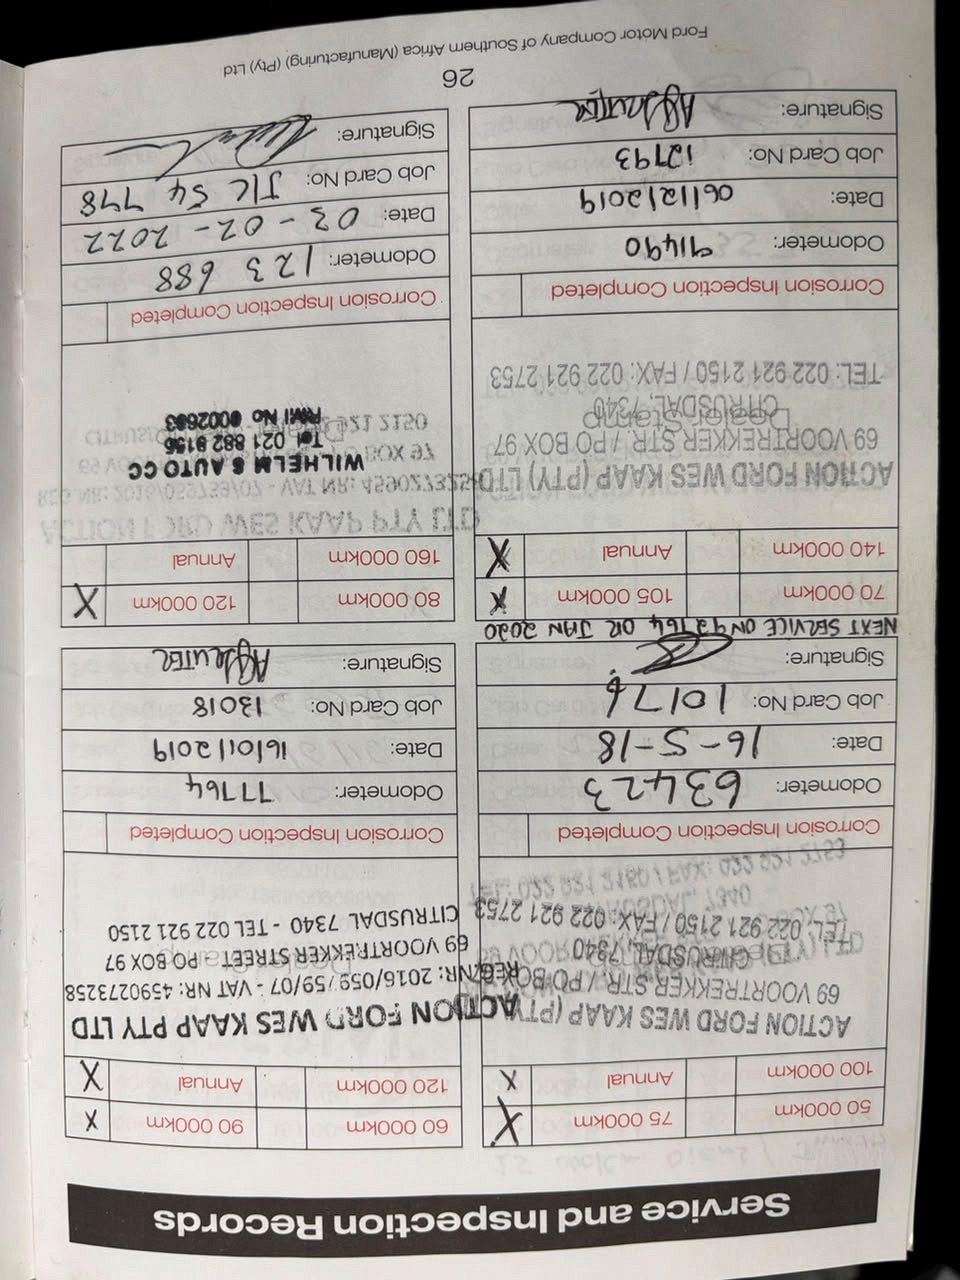 Service and Inspection Records
50 000km 75 000km X
100 000km Annual X
ACTION FORD WES KAAP (PTY) LTD
69 VOORTREKKER STR. / PO BOX 97
CITRUSDAL, 7340
TEL: 022 921 2150 / FAX: 022 921 2753
Corrosion Inspection Completed
Odometer: 63423
Date: 16-5-18
Job Card No: 10176
Signature:
NEXT SERVICE ON 92764 OR JAN 2020
60 000km 90 000km X
120 000km Annual X
ACTION FORD WES KAAP PTY LTD
REG NR: 2016/059759/07 - VAT NR: 4590273258
69 VOORTREKKER STREET - PO BOX 97
CITRUSDAL 7340 - TEL 022 921 2150
Corrosion Inspection Completed
Odometer: 77764
Date: 16/01/2019
Job Card No: 13018
Signature:
70 000km 105 000km X
140 000km Annual X
ACTION FORD WES KAAP (PTY) LTD
69 VOORTREKKER STR. / PO BOX 97
Dealer Stamp
CITRUSDAL, 7340
TEL: 022 921 2150 / FAX: 022 921 2753
Corrosion Inspection Completed
Odometer: 91490
Date: 06/12/2019
Job Card No: 12793
Signature:
80 000km 120 000km X
160 000km Annual
WILHELM S AUTO CC
Tel 021 882 8156
RMI No
Corrosion Inspection Completed
Odometer: 123 688
Date: 03-02-2022
Job Card No: J/C 54 778
Signature:
26
Ford Motor Company of Southern Africa (Manufacturing) (Pty) Ltd